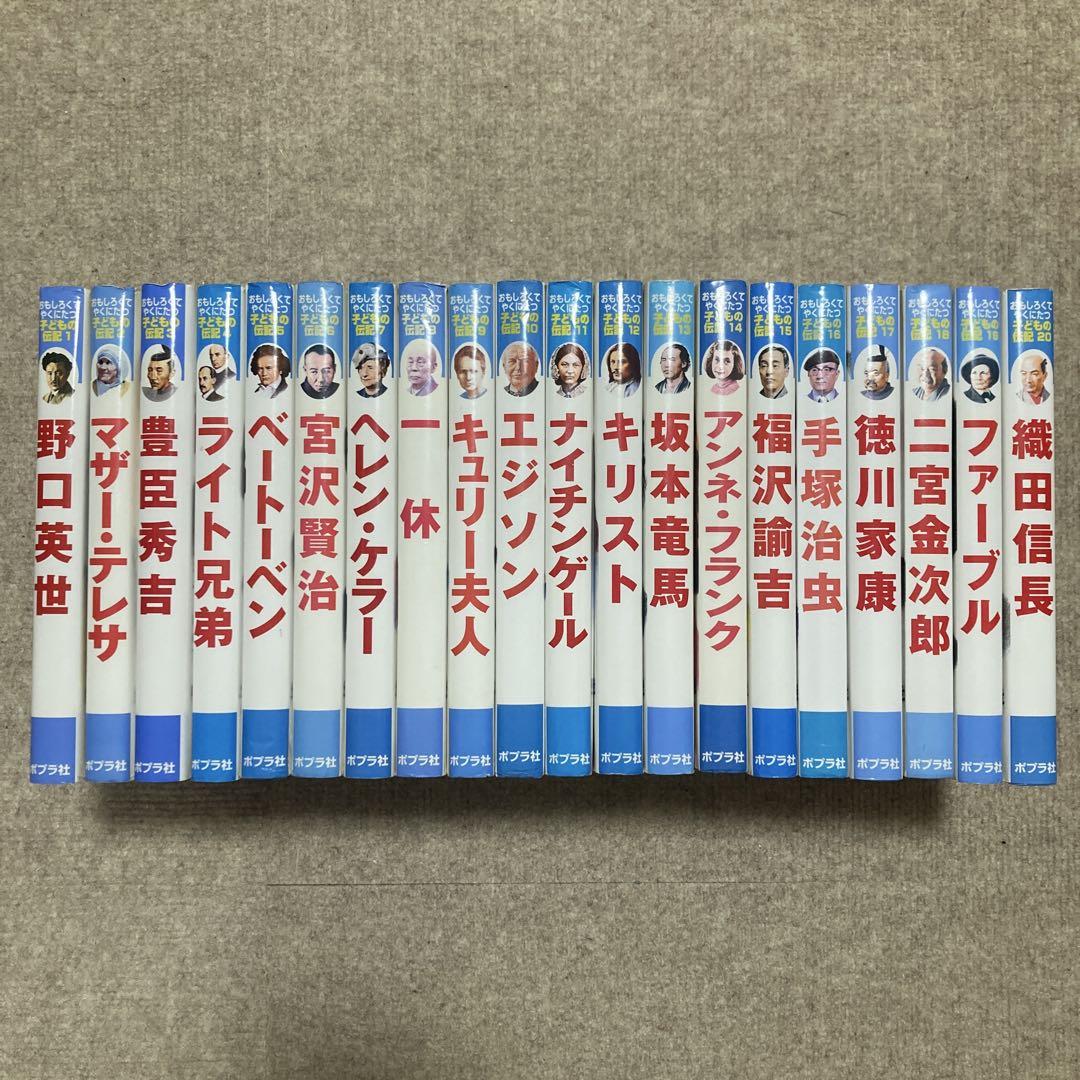 おもしろくて
やくにたつ
子どもの
伝記 1
野口英世
ポプラ社
おもしろくて
やくにたつ
子どもの
伝記 2
マザー・テレサ
ポプラ社
おもしろくて
やくにたつ
子どもの
伝記 3
豊臣秀吉
ポプラ社
おもしろくて
やくにたつ
子どもの
伝記 4
ライト兄弟
ポプラ社
おもしろくて
やくにたつ
子どもの
伝記 5
ベートーベン
ポプラ社
おもしろくて
やくにたつ
子どもの
伝記 6
宮沢賢治
ポプラ社
おもしろくて
やくにたつ
子どもの
伝記 7
ヘレン・ケラー
ポプラ社
おもしろくて
やくにたつ
子どもの
伝記 8
一休
ポプラ社
おもしろくて
やくにたつ
子どもの
伝記 9
キュリー夫人
ポプラ社
おもしろくて
やくにたつ
子どもの
伝記 10
エジソン
ポプラ社
おもしろくて
やくにたつ
子どもの
伝記 11
ナイチンゲール
ポプラ社
おもしろくて
やくにたつ
子どもの
伝記 12
キリスト
ポプラ社
おもしろくて
やくにたつ
子どもの
伝記 13
坂本竜馬
ポプラ社
おもしろくて
やくにたつ
子どもの
伝記 14
アンネ・フランク
ポプラ社
おもしろくて
やくにたつ
子どもの
伝記 15
福沢諭吉
ポプラ社
おもしろくて
やくにたつ
子どもの
伝記 16
手塚治虫
ポプラ社
おもしろくて
やくにたつ
子どもの
伝記 17
徳川家康
ポプラ社
おもしろくて
やくにたつ
子どもの
伝記 18
二宮金次郎
ポプラ社
おもしろくて
やくにたつ
子どもの
伝記 19
ファーブル
ポプラ社
おもしろくて
やくにたつ
子どもの
伝記 20
織田信長
ポプラ社